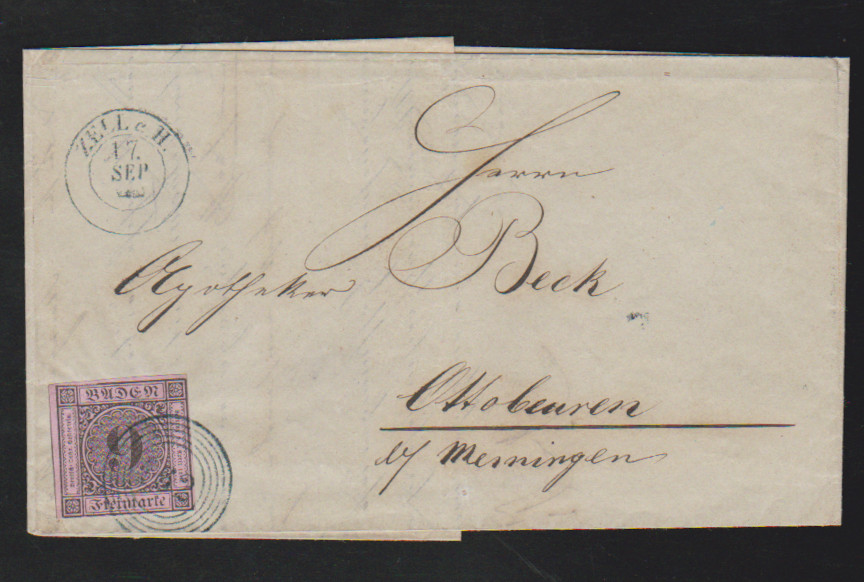 ZELL a H.
17.
SEP
Herrn
Apotheker Beck
Ottobeuren
b/ Memingen
BADEN
9
Freimarke